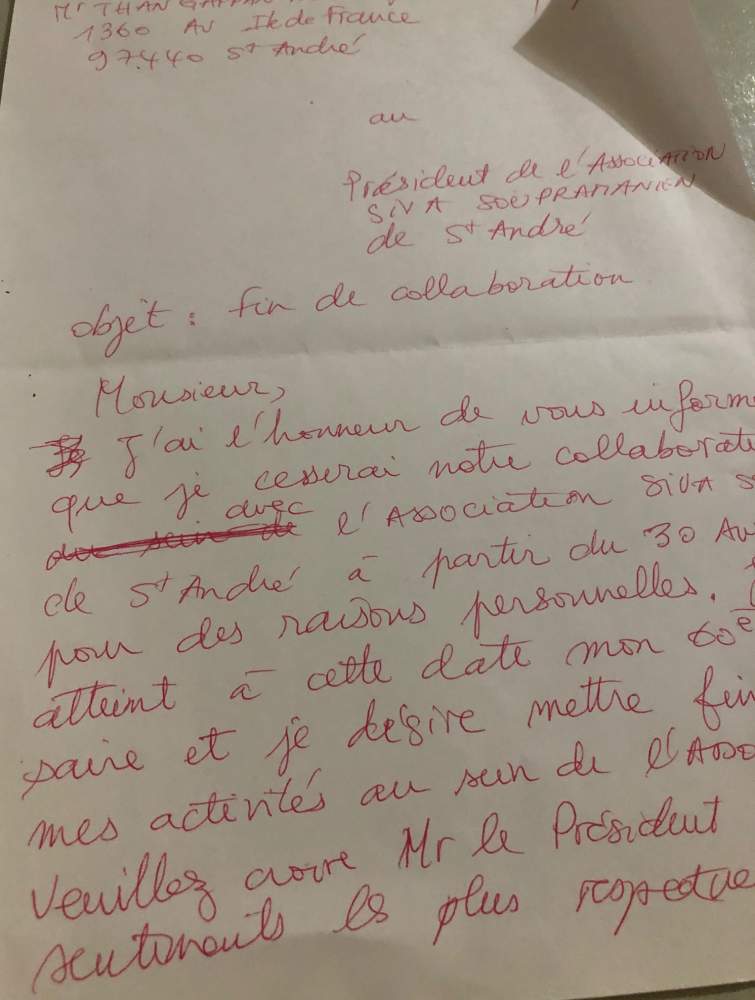 Mr THAN
1360 AV Ile de France
97440 St André
au
Président de l'ASSOCIATION
SIVA SOUPRAMANIEN
de St André
objet : fin de collaboration
Monsieur,
J'ai l'honneur de vous inform
que je cesserai notre collaborati
avec
l'Association SIVA S
de St André à partir du 30 Av
pour des raisons personnelles.
atteint à cette date mon 60e
saire et je désire mettre fin
mes activités au sein de l'Asso
Veuillez croire Mr le Président
sentiments les plus respectue